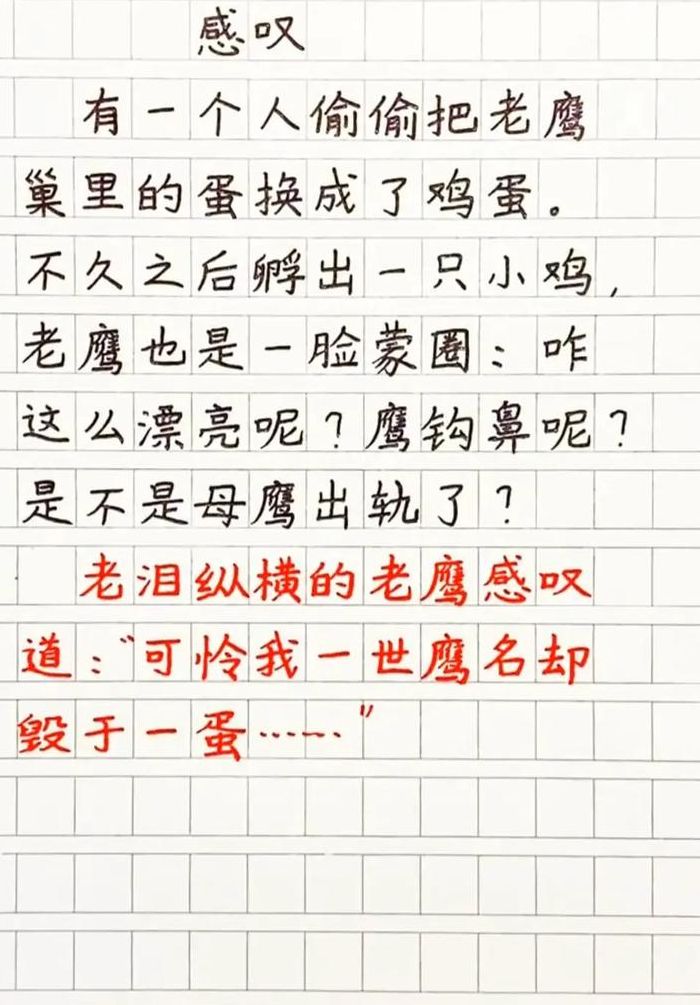 感叹
有一个人偷偷把老鹰
巢里的蛋换成了鸡蛋。
不久之后孵出一只小鸡,
老鹰也是一脸蒙圈:咋
这么漂亮呢?鹰钩鼻呢?
是不是母鹰出轨了?
老泪纵横的老鹰感叹
道:“可怜我一世鹰名却
毁于一蛋……”